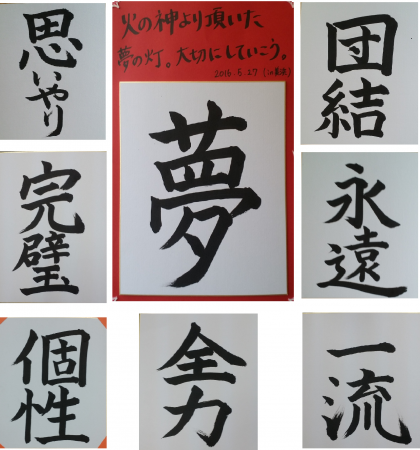 思いやり
火の神より頂いた
夢の灯。大切にしていこう。
2016.5.27
夢
団結
完璧
永遠
個性
全力
一流